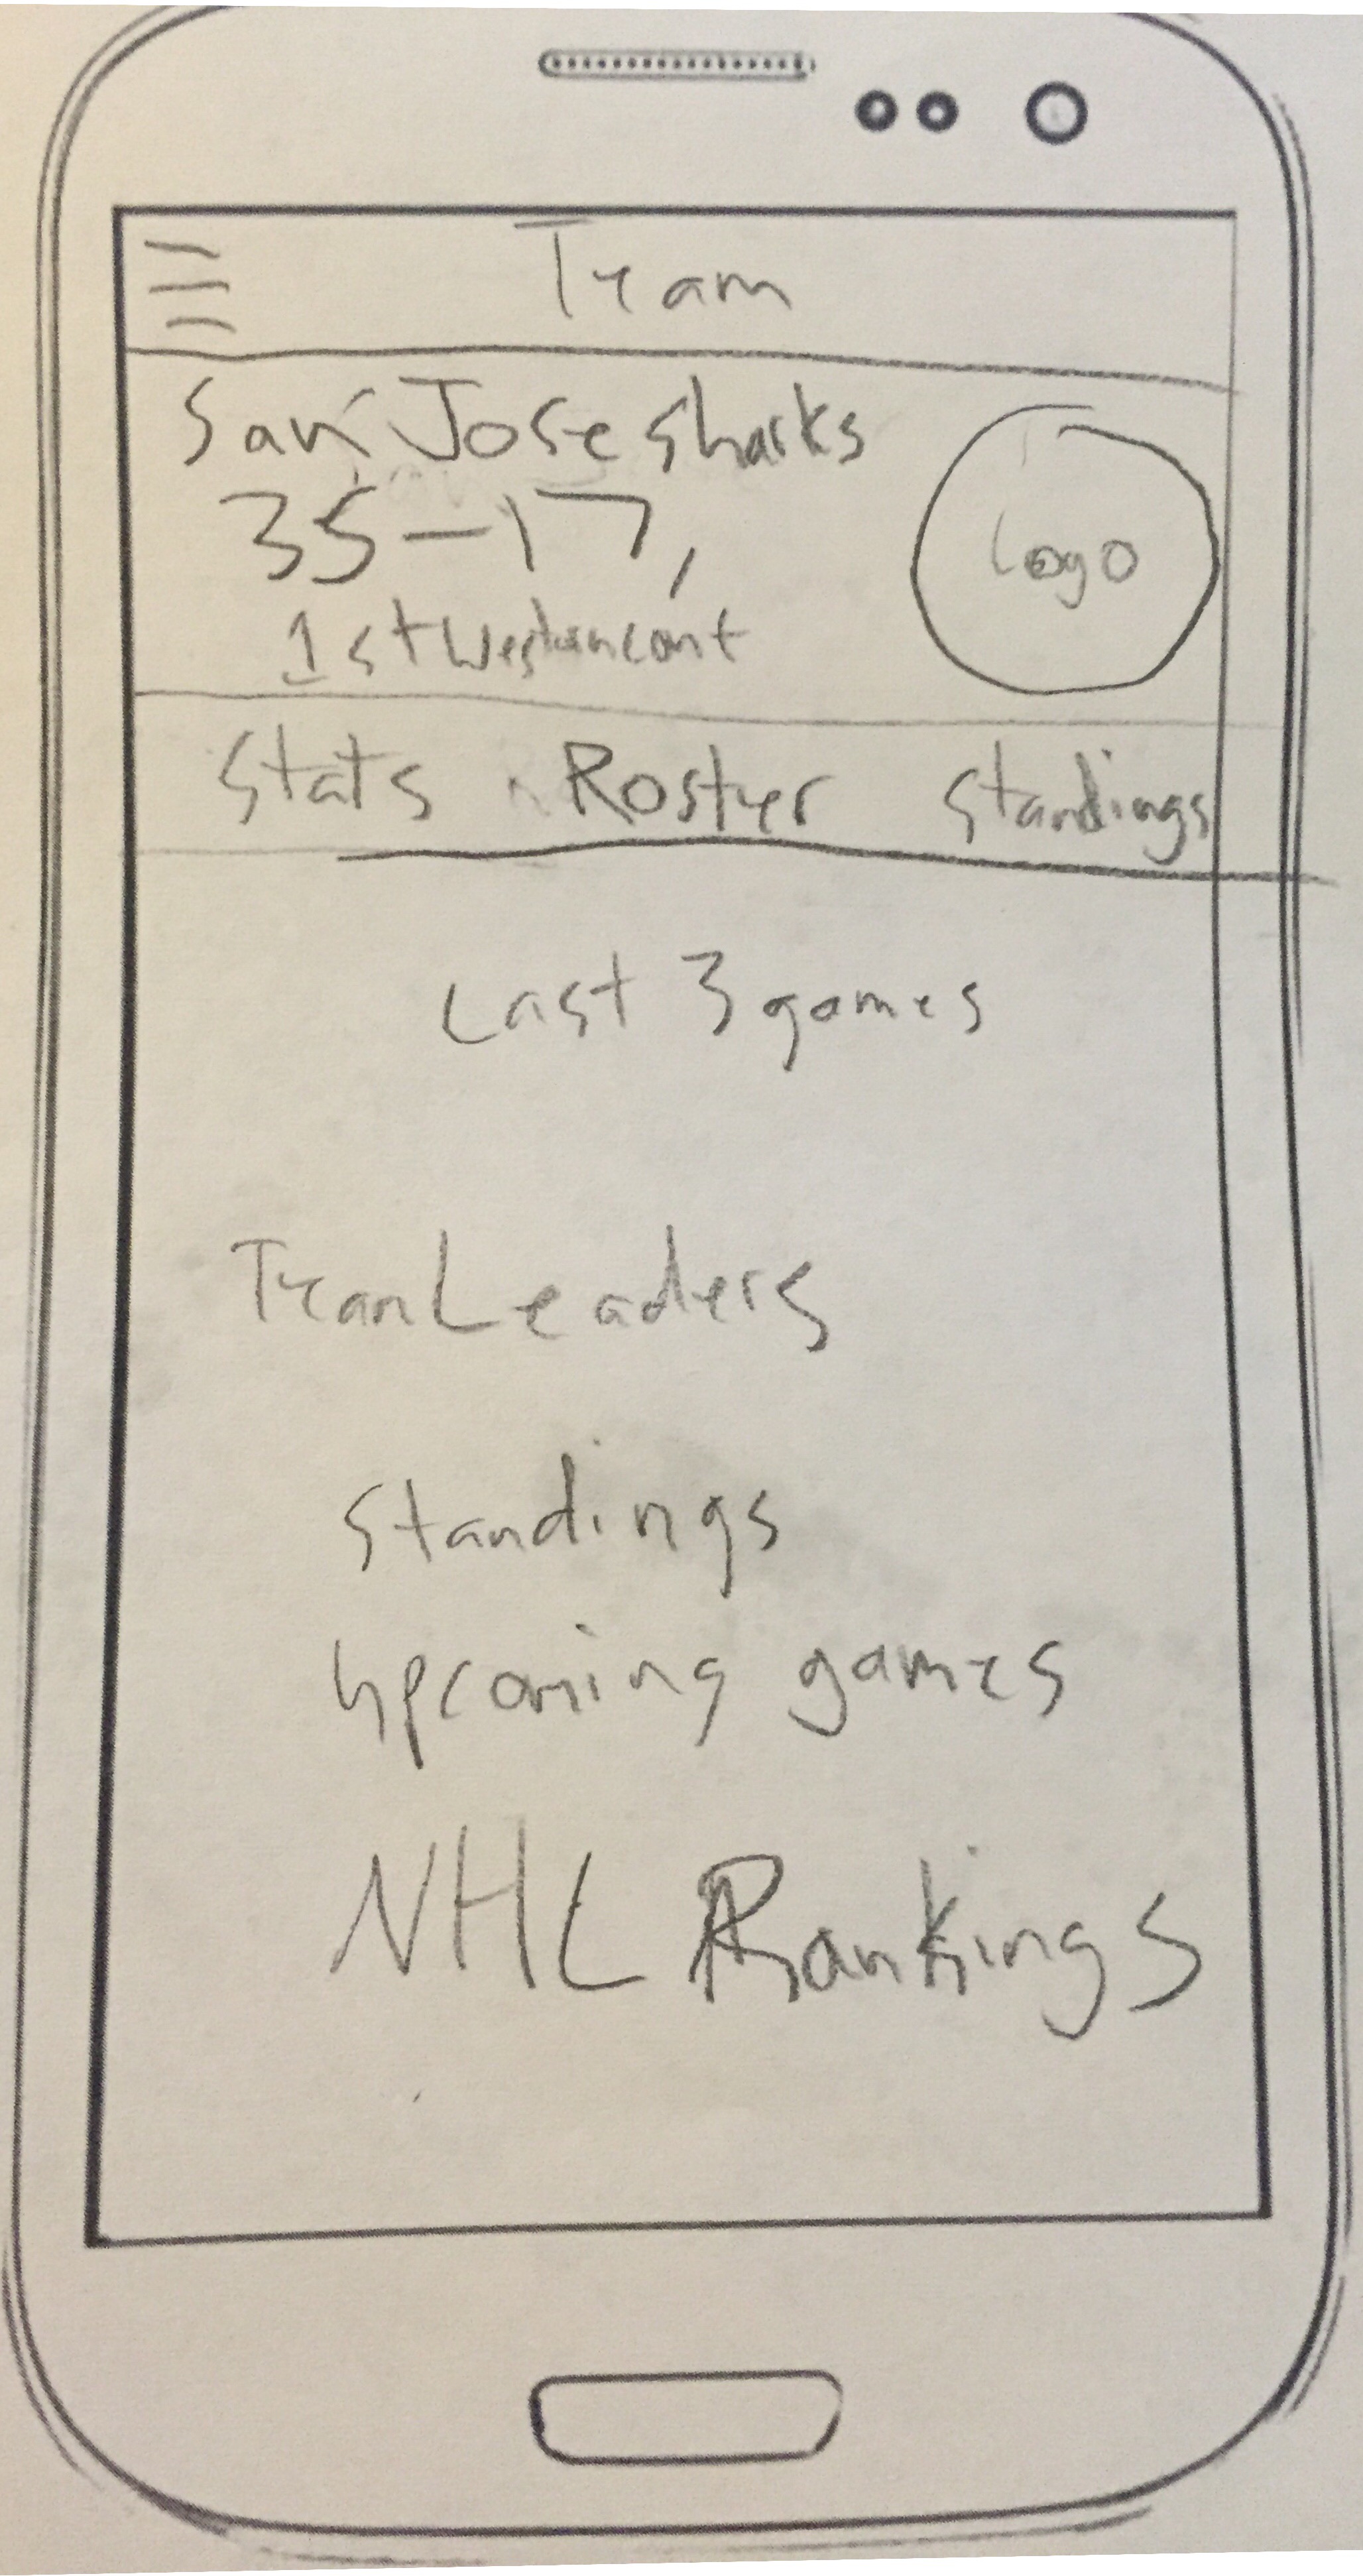 Team
San Jose Sharks
35-17,
1st Western conf
Logo
Stats Roster Standings
Last 3 games
Team Leaders
Standings
Upcoming games
NHL Rankings